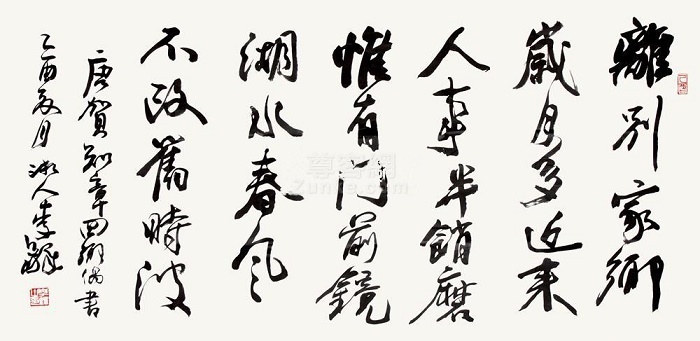 離別家鄉
歲月多近来
人事半銷磨
惟有門前鏡
湖水春風
不改舊時波
唐賀知章回鄉偶書
乙酉夏月湖人李
尊客網
Zunke.com